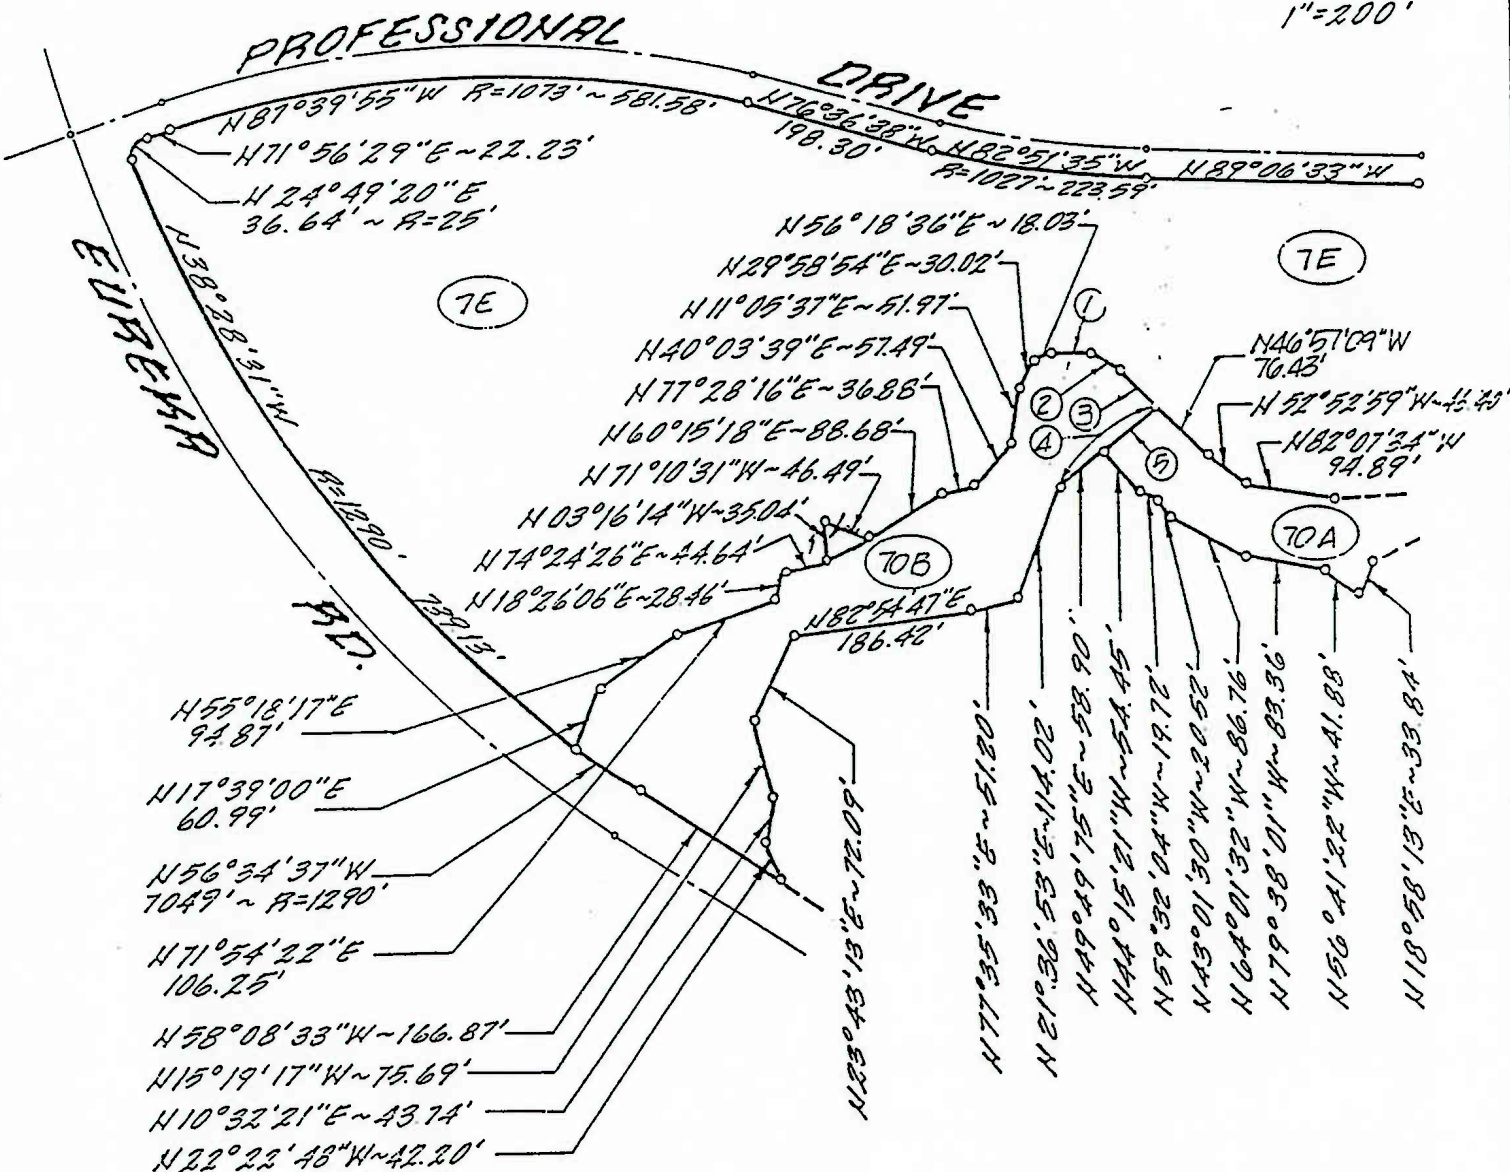 1"=200'
PROFESSIONAL DRIVE
N87°39'55"W R=1073'~581.58'
N76°36'38"W
198.30'
N82°51'35"W
R=1027'~223.59'
N89°06'33"W
N71°56'29"E~22.23'
N24°49'20"E
36.64'~R=25'
EUREKA RD.
N38°28'31"W
R=1290'
739.13'
7E
7E
N56°18'36"E~18.03'
N29°58'54"E~30.02'
N11°05'37"E~51.97'
N40°03'39"E~57.49'
N77°28'16"E~36.88'
N60°15'18"E~88.68'
N71°10'31"W~46.49'
N03°16'14"W~35.04'
N74°24'26"E~44.64'
N18°26'06"E~28.46'
1
2
3
4
5
N46°57'09"W
76.43'
N52°52'59"W
N82°07'34"W
94.89'
70A
70B
N82°54'47"E
186.42'
N55°18'17"E
94.87'
N17°39'00"E
60.99'
N56°34'37"W
70.49'~R=1290'
N71°54'22"E
106.25'
N58°08'33"W~166.87'
N15°19'17"W~75.69'
N10°32'21"E~43.74'
N22°22'48"W~42.20'
N23°43'13"E~72.09'
N44°15'21"W~54.45'
N59°32'04"W~19.72'
N43°01'30"W~20.52'
N64°01'32"W~86.76'
N79°38'01"W~83.36'
N56°41'22"W~41.88'
N18°58'13"E~33.84'